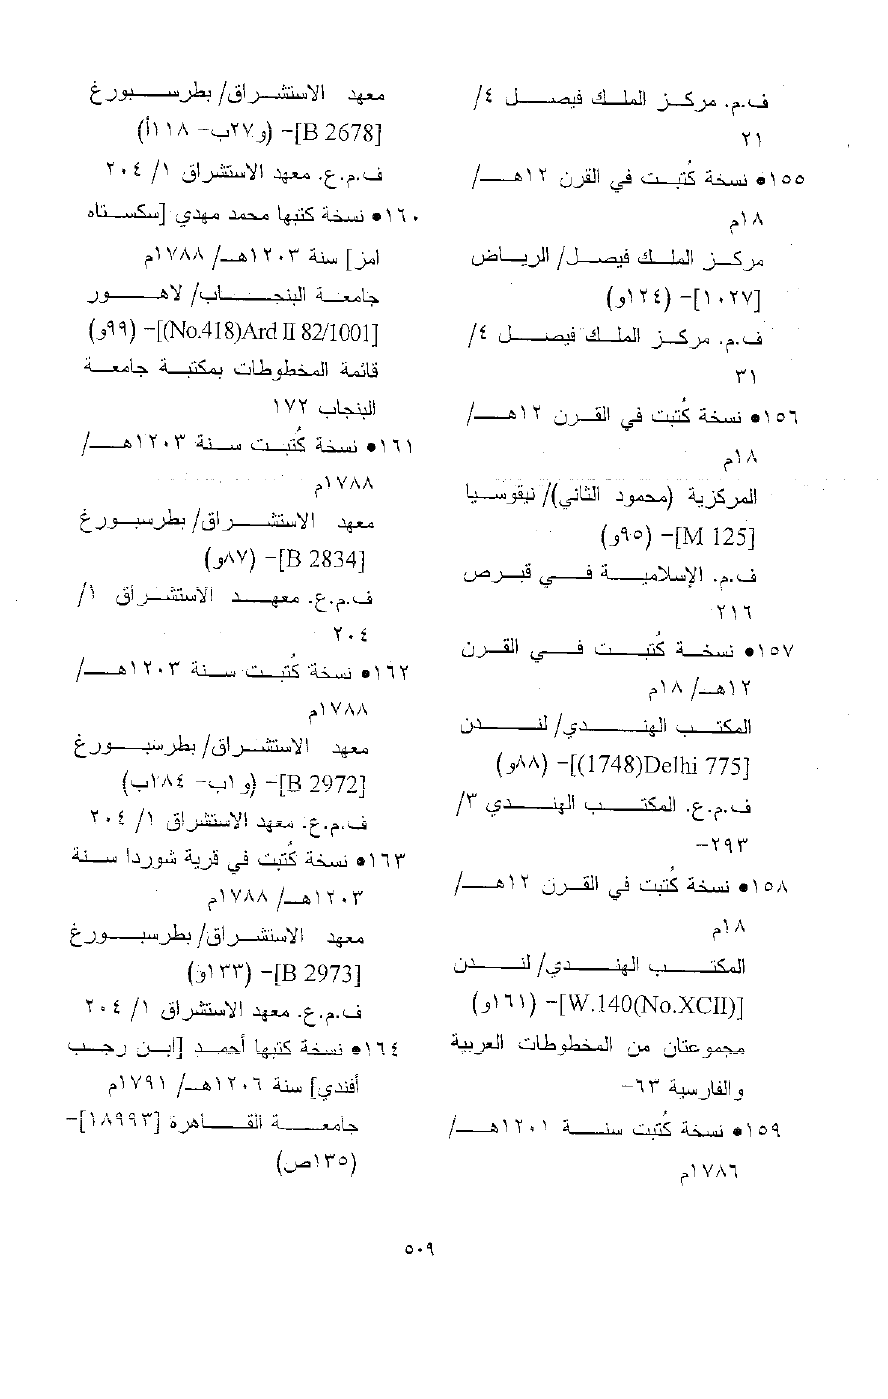 ف.م. مركز الملك فيصل ٤/
٢١
١٥٥• نسخة كُتبت في القرن ١٢هـ/
١٨م
مركز الملك فيصل/ الرياض
[١٠٢٧]- (١٢٤و)
ف.م. مركز الملك فيصل ٤/
٣١
١٥٦• نسخة كُتبت في القرن ١٢هـ/
١٨م
المركزية (محمود الثاني)/ نيقوسيا
[M 125]- (٩٥و)
ف.م. الإسلامية في قبرص
٢١٦
١٥٧• نسخة كُتبت في القرن
١٢هـ/ ١٨م
المكتب الهندي/ لندن
[Delhi 775(1748)]- (٨٨و)
ف.م.ع. المكتب الهندي ٣/
٢٩٣-
١٥٨• نسخة كُتبت في القرن ١٢هـ/
١٨م
المكتب الهندي/ لندن
[W.140(No.XCII)]- (١٦١و)
مجموعتان من المخطوطات العربية
والفارسية ٦٣-
١٥٩• نسخة كُتبت سنة ١٢٠١هـ/
١٧٨٦م
معهد الاستشراق/ بطرسبورغ
[B 2678]- (و٢٧ب- ١١٨أ)
ف.م.ع. معهد الاستشراق ١/ ٢٠٤
١٦٠• نسخة كتبها محمد مهدي [سكستاه
امز] سنة ١٢٠٣هـ/ ١٧٨٨م
جامعة البنجاب/ لاهور
[Ard II 82/1001(No.418)]- (٩٩و)
قائمة المخطوطات بمكتبة جامعة
البنجاب ١٧٢
١٦١• نسخة كُتبت سنة ١٢٠٣هـ/
١٧٨٨م
معهد الاستشراق/ بطرسبورغ
[B 2834]- (٨٧و)
ف.م.ع. معهد الاستشراق ١/
٢٠٤
١٦٢• نسخة كُتبت سنة ١٢٠٣هـ/
١٧٨٨م
معهد الاستشراق/ بطرسبورغ
[B 2972]- (و١ب- ١٨٤ب)
ف.م.ع. معهد الاستشراق ١/ ٢٠٤
١٦٣• نسخة كُتبت في قرية شوردا سنة
١٢٠٣هـ/ ١٧٨٨م
معهد الاستشراق/ بطرسبورغ
[B 2973]- (١٣٣و)
ف.م.ع. معهد الاستشراق ١/ ٢٠٤
١٦٤• نسخة كتبها أحمد [ابن رجب
أفندي] سنة ١٢٠٦هـ/ ١٧٩١م
جامعة القاهرة [١٨٩٩٣]-
(١٣٥ص)
٥٠٩